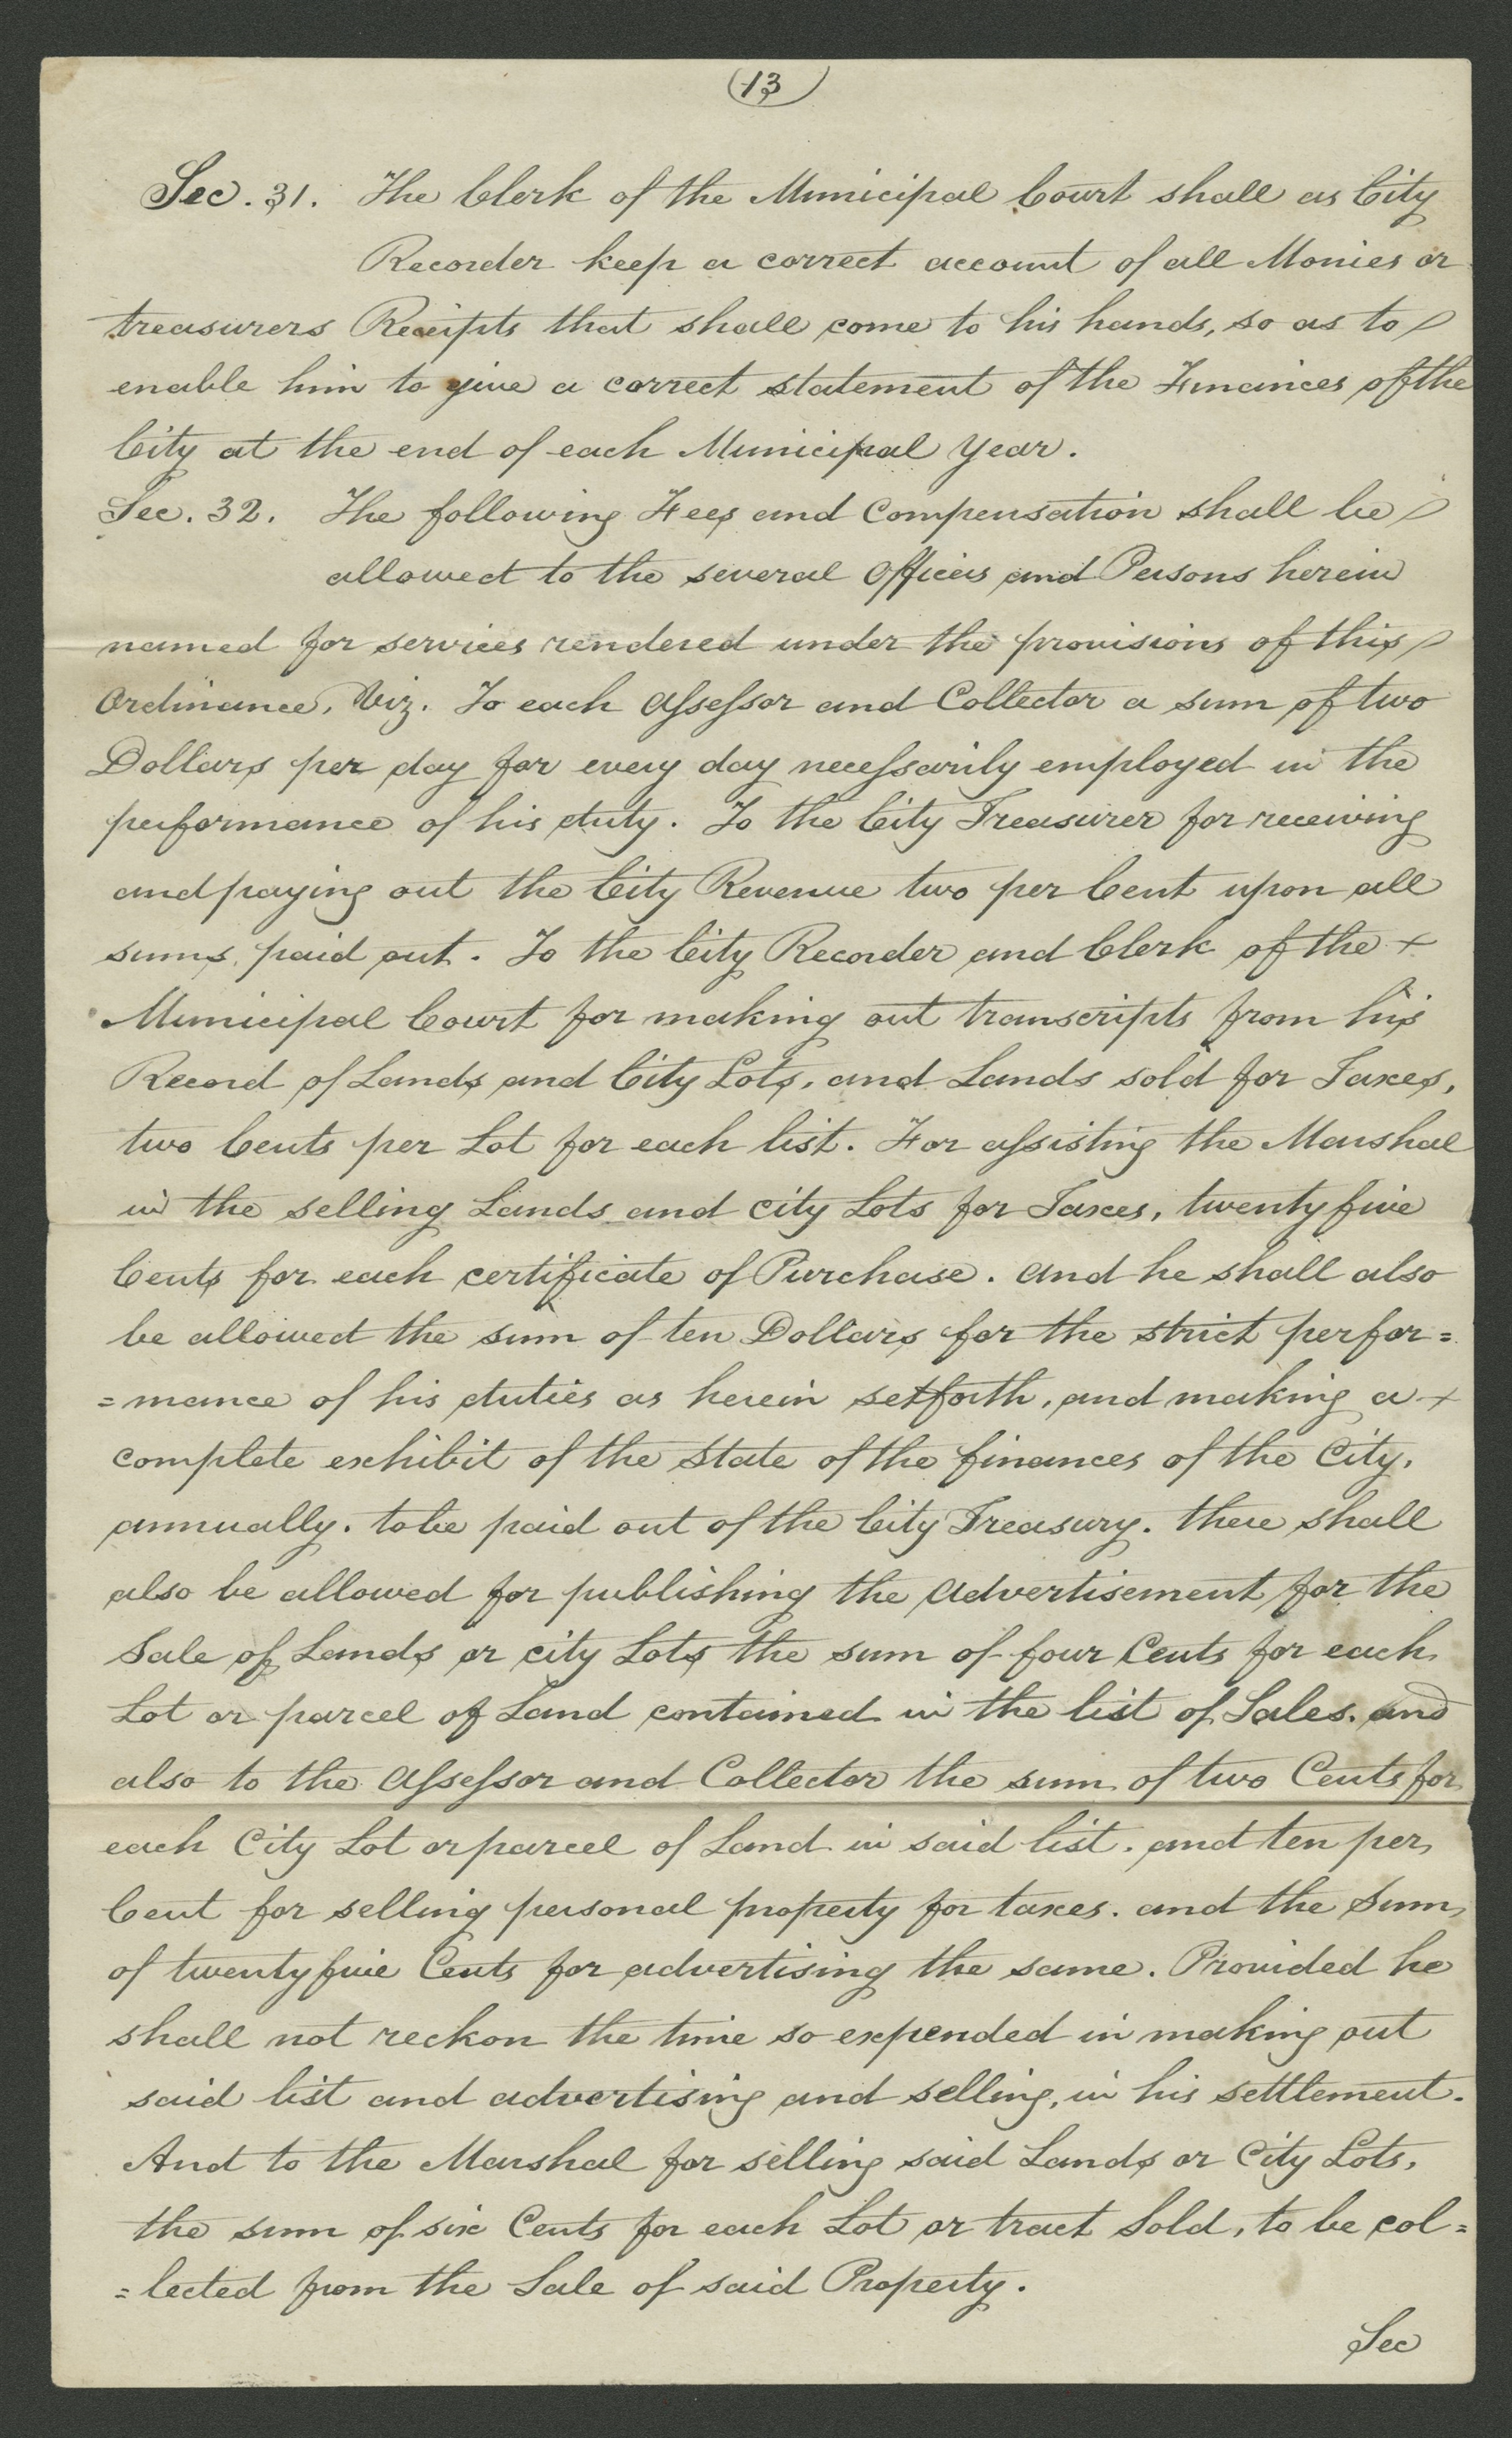 13
Sec. 31. The Clerk of the Municipal Court shall as City
Recorder keep a correct account of all Monies or
treasurers Receipts that shall come to his hands, so as to
enable him to give a correct statement of the Finances of the
City at the end of each Municipal Year.
Sec. 32. The following Fees and Compensation shall be
allowed to the several Officers and Persons herein
named for services rendered under the provisions of this
Ordinance, Viz. To each Assessor and Collector a sum of two
Dollars per day for every day necessarily employed in the
performance of his duty. To the City Treasurer for receiving
and paying out the City Revenue two per Cent upon all
sums, paid out. To the City Recorder and Clerk of the +
Municipal Court for making out transcripts from his
Record of Lands and City Lots, and Lands sold for Taxes,
two Cents per Lot for each list. For assisting the Marshal
in the selling Lands and City Lots for Taxes, twenty five
Cents for each certificate of Purchase. And he shall also
be allowed the sum of ten Dollars for the strict perfor=
=mance of his duties as herein set forth, and making a +
complete exhibit of the State of the finances of the City,
annually. to be paid out of the City Treasury. there shall
also be allowed for publishing the Advertisement for the
Sale of Lands or city Lots the sum of four Cents for each
Lot or parcel of Land contained in the list of Sales. and
also to the Assessor and Collector the sum of two Cents for
each City Lot or parcel of Land in said list. and ten per
Cent for selling personal property for taxes. and the Sum
of twenty five Cents for advertising the same. Provided he
shall not reckon the time so expended in making out
said list and advertising and selling, in his settlement.
And to the Marshal for selling said Lands or City Lots,
the sum of six Cents for each Lot or tract Sold, to be col=
=lected from the Sale of said Property.
Sec